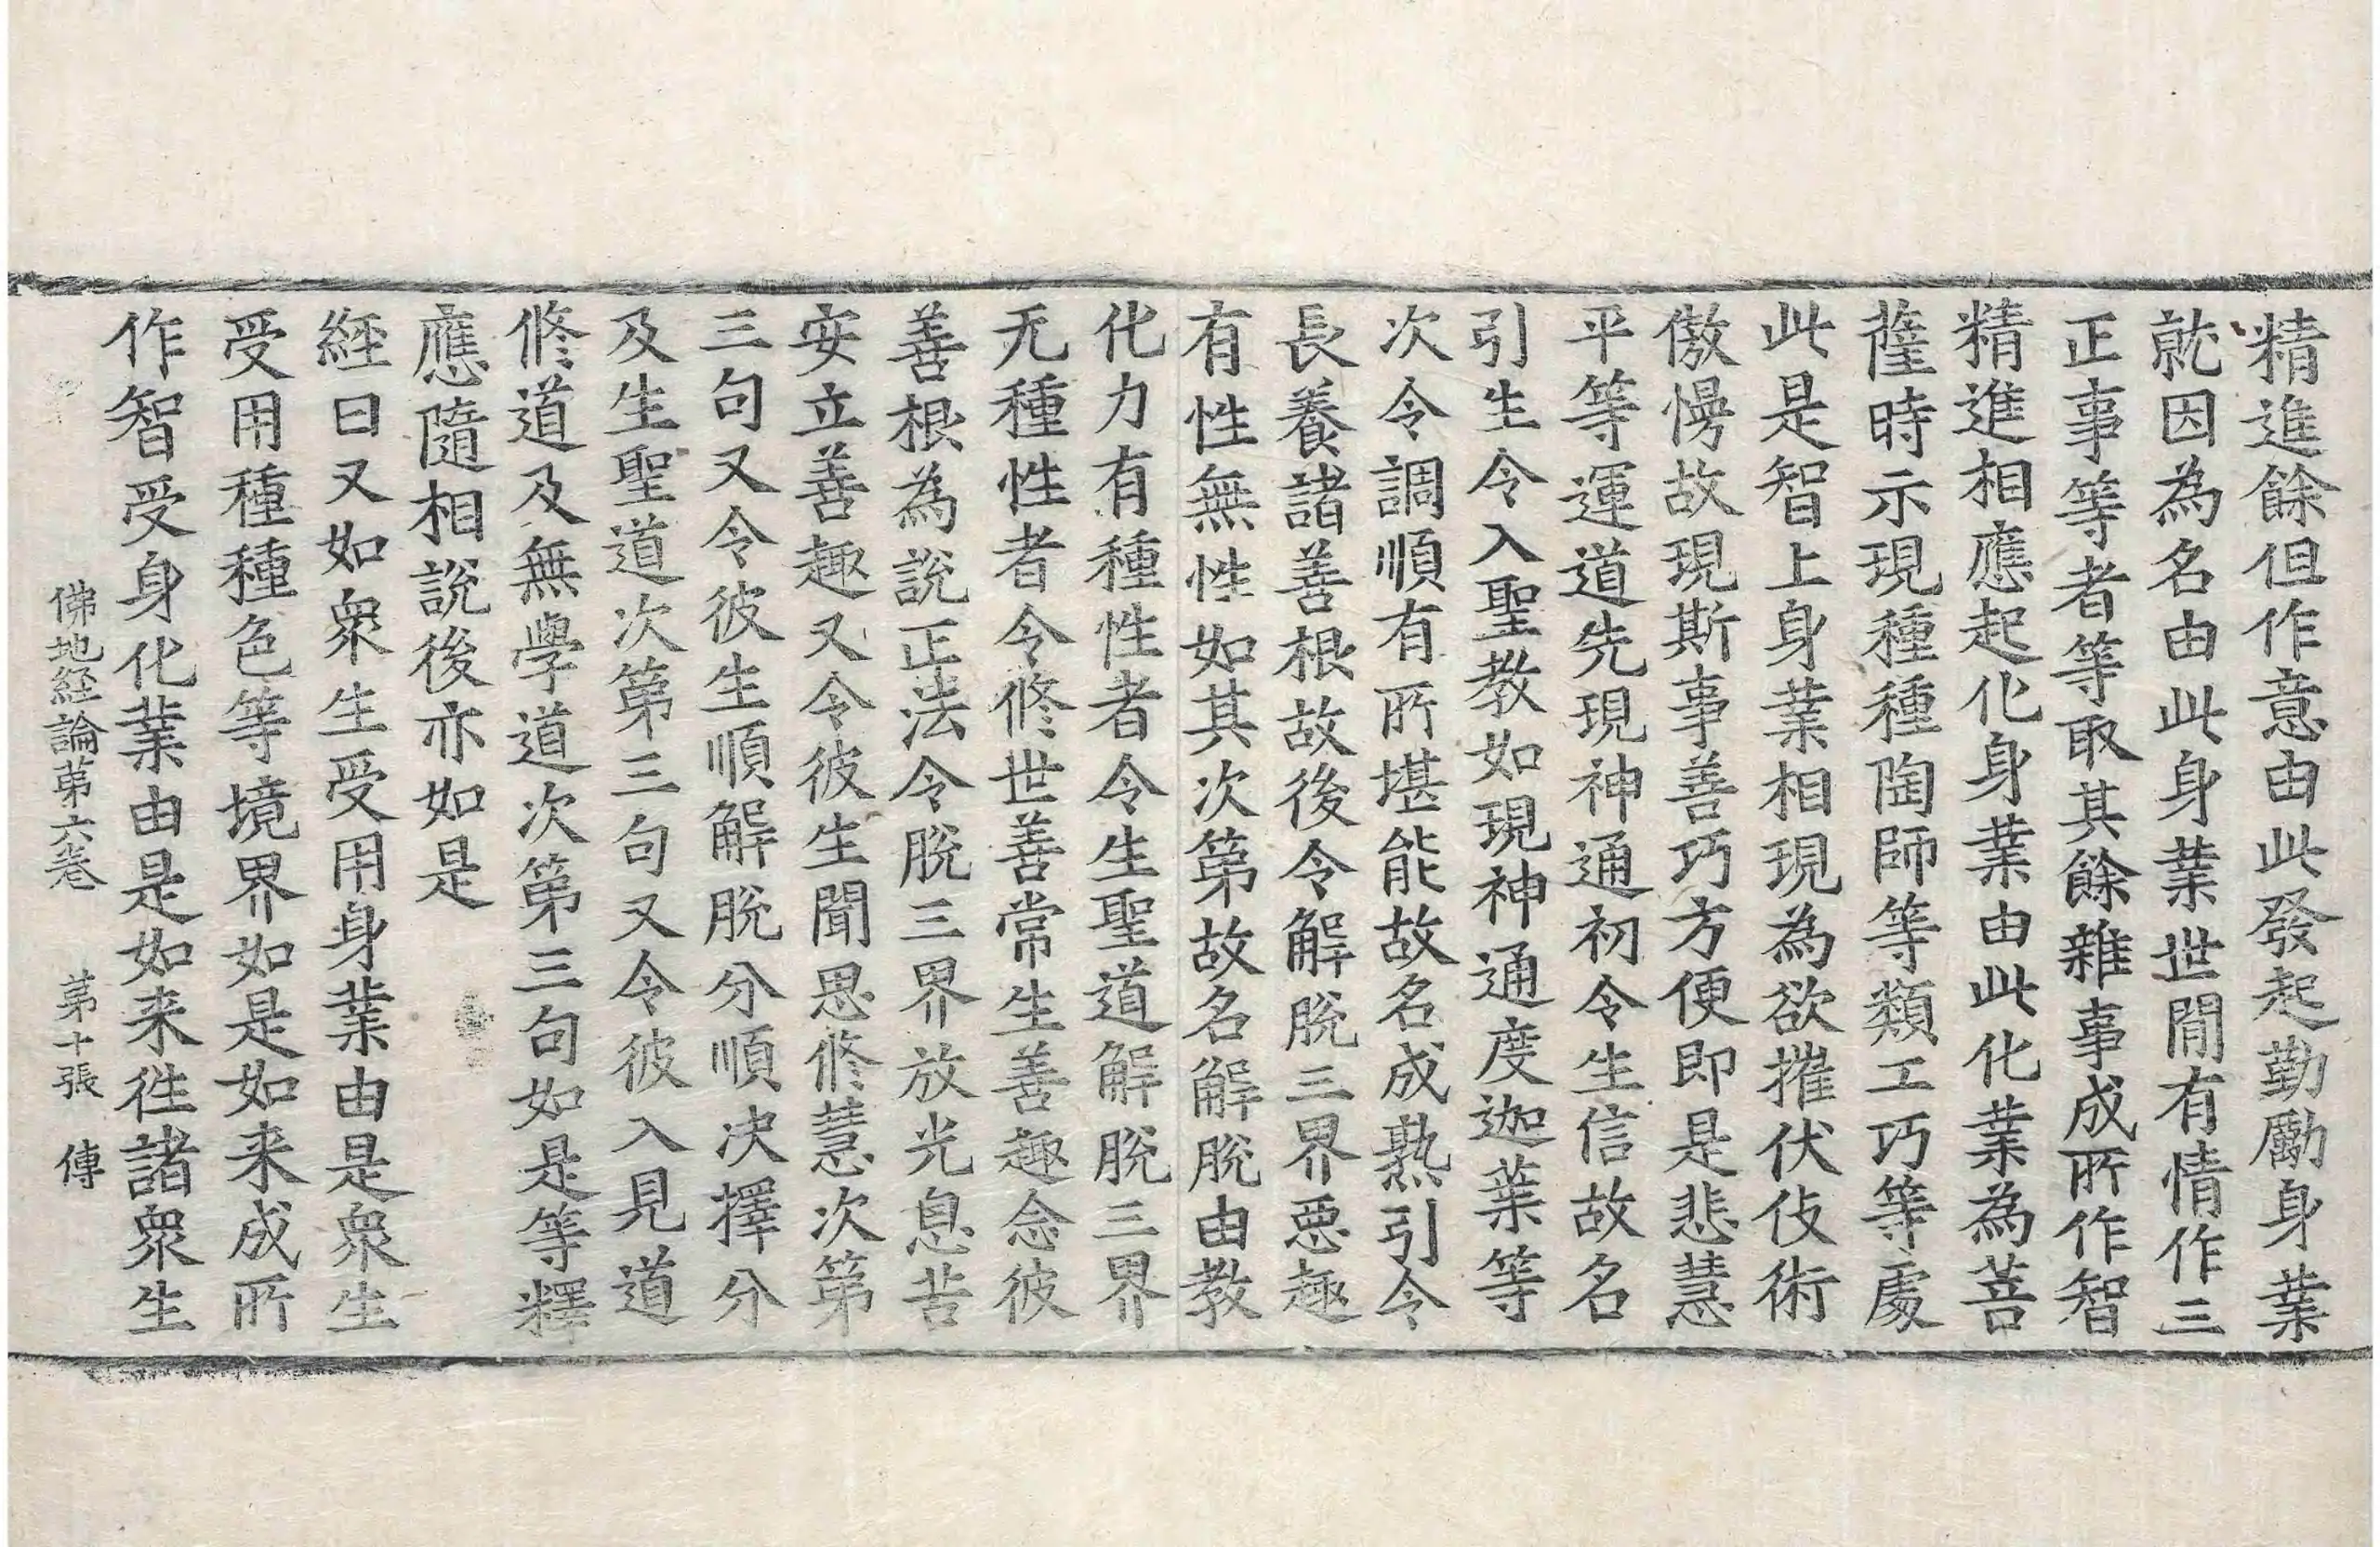 精進餘但作意由此發起勤勵身業
就因為名由此身業世間有情作三
正事等者等取其餘雜事成所作智
精進相應起化身業由此化業為菩
薩時示現種種陶師等類工巧等處
此是智上身業相現為欲摧伏伎術
傲慢故現斯事善巧方便即是悲慧
平等運道先現神通初令生信故名
引生令入聖教如現神通度迦葉等
次令調順有所堪能故名成熟引令
長養諸善根故後令解脫三界惡趣
有性無性如其次第故名解脫由教
化力有種性者令生聖道解脫三界
无種性者令修世善常生善趣念彼
善根為說正法令脫三界放光息苦
安立善趣又令彼生聞思修慧次第
三句又令彼生順解脫分順決擇分
及生聖道次第三句又令彼入見道
修道及無學道次第三句如是等釋
應隨相說後亦如是
經曰又如衆生受用身業由是衆生
受用種種色等境界如是如来成所
作智受身化業由是如来徃諸衆生
佛地経論第六卷　第十張　傳